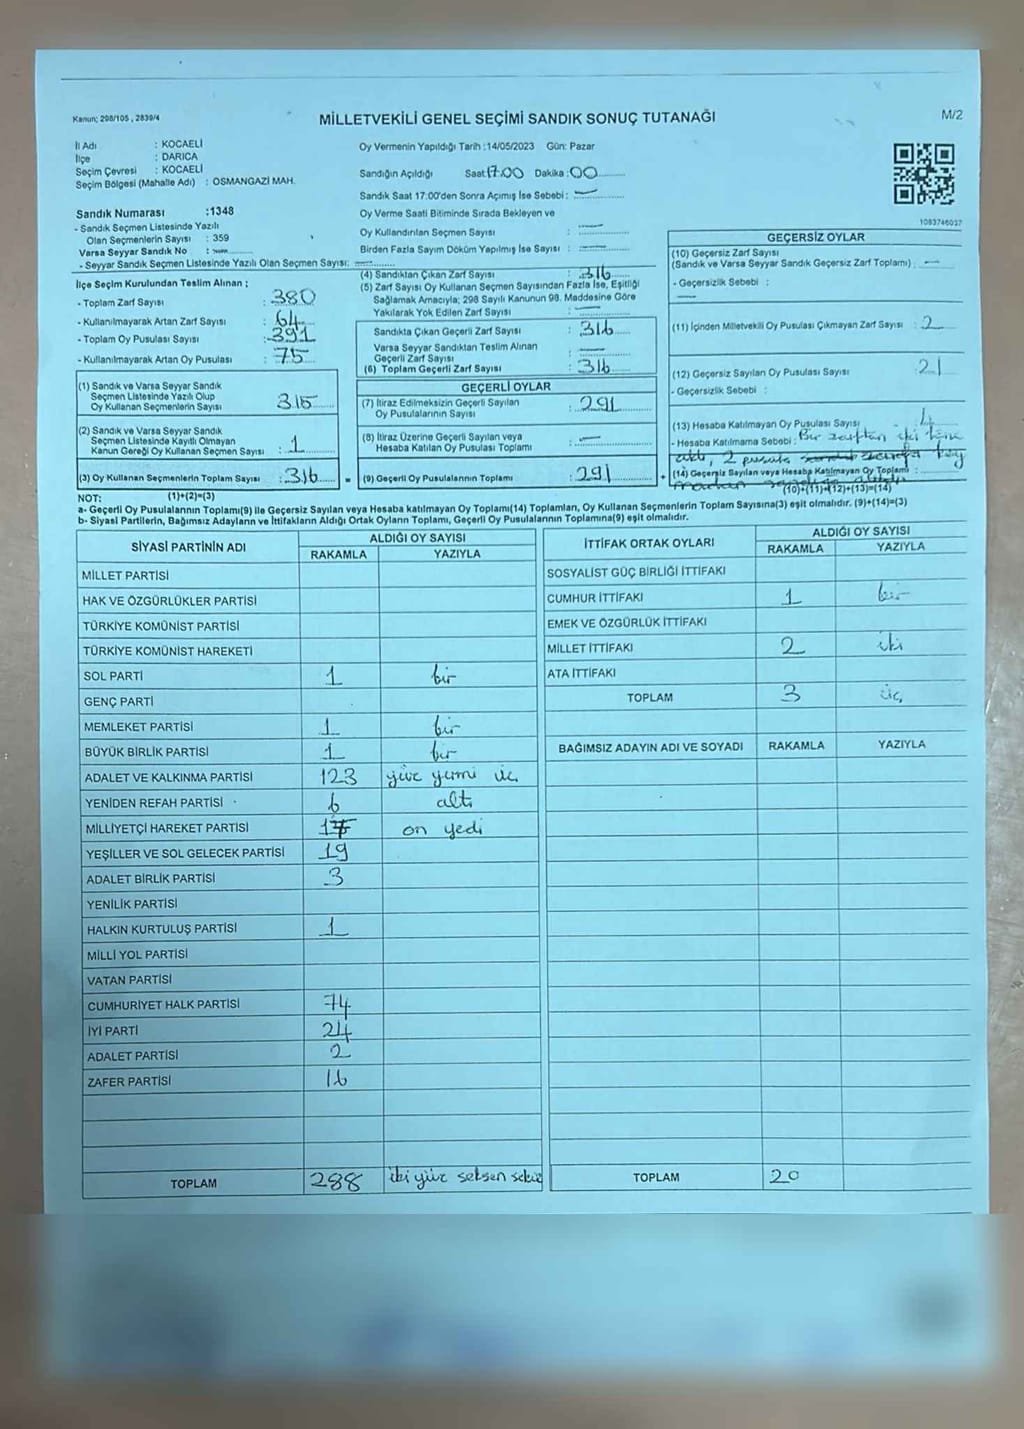 Kanun; 298/105 , 2839/4
MİLLETVEKİLİ GENEL SEÇİMİ SANDIK SONUÇ TUTANAĞI
M/2
İl Adı : KOCAELİ
İlçe : DARICA
Seçim Çevresi : KOCAELİ
Seçim Bölgesi (Mahalle Adı) : OSMANGAZİ MAH.
Sandık Numarası :1348
- Sandık Seçmen Listesinde Yazılı
Olan Seçmenlerin Sayısı : 359
Varsa Seyyar Sandık No :
- Seyyar Sandık Seçmen Listesinde Yazılı Olan Seçmen Sayısı:
Oy Vermenin Yapıldığı Tarih :14/05/2023 Gün: Pazar
Sandığın Açıldığı Saat:17:00 Dakika :00
Sandık Saat 17.00'den Sonra Açmış İse Sebebi : —
Oy Verme Saati Bitiminde Sırada Bekleyen ve
Oy Kullandırılan Seçmen Sayısı : —
Birden Fazla Sayım Döküm Yapılmış İse Sayısı : —
1083746037
İlçe Seçim Kurulundan Teslim Alınan ;
- Toplam Zarf Sayısı : 380
- Kullanılmayarak Artan Zarf Sayısı : 64
- Toplam Oy Pusulası Sayısı : 391
- Kullanılmayarak Artan Oy Pusulası : 75
(1) Sandık ve Varsa Seyyar Sandık
Seçmen Listesinde Yazılı Olup
Oy Kullanan Seçmenlerin Sayısı : 315
(2) Sandık ve Varsa Seyyar Sandık
Seçmen Listesinde Kayıtlı Olmayan
Kanun Gereği Oy Kullanan Seçmen Sayısı : 1
(3) Oy Kullanan Seçmenlerin Toplam Sayısı : 316
(4) Sandıktan Çıkan Zarf Sayısı : 316
(5) Zarf Sayısı Oy Kullanan Seçmen Sayısından Fazla İse, Eşitliği
Sağlamak Amacıyla; 298 Sayılı Kanunun 98. Maddesine Göre
Yakılarak Yok Edilen Zarf Sayısı : —
Sandıkta Çıkan Geçerli Zarf Sayısı : 316
Varsa Seyyar Sandıktan Teslim Alınan
Geçerli Zarf Sayısı : —
(6) Toplam Geçerli Zarf Sayısı : 316
GEÇERLİ OYLAR
(7) İtiraz Edilmeksizin Geçerli Sayılan
Oy Pusulalarının Sayısı : 291
(8) İtiraz Üzerine Geçerli Sayılan veya
Hesaba Katılan Oy Pusulası Toplamı : —
= (9) Geçerli Oy Pusulalarının Toplamı : 291
GEÇERSİZ OYLAR
(10) Geçersiz Zarf Sayısı
(Sandık ve Varsa Seyyar Sandık Geçersiz Zarf Toplamı) : —
- Geçersizlik Sebebi :
—
(11) İçinden Milletvekili Oy Pusulası Çıkmayan Zarf Sayısı : 2
(12) Geçersiz Sayılan Oy Pusulası Sayısı : 21
- Geçersizlik Sebebi :
(13) Hesaba Katılmayan Oy Pusulası Sayısı : 4
- Hesaba Katılmama Sebebi : Bir zarftan iki tane
2 pusula
+ (14) Geçersiz Sayılan veya Hesaba Katılmayan Oy Toplamı :
(10)+(11)+(12)+(13)=(14)
NOT: (1)+(2)=(3)
a- Geçerli Oy Pusulalarının Toplamı(9) ile Geçersiz Sayılan veya Hesaba katılmayan Oy Toplamı(14) Toplamları, Oy Kullanan Seçmenlerin Toplam Sayısına(3) eşit olmalıdır. (9)+(14)=(3)
b- Siyasi Partilerin, Bağımsız Adayların ve İttifakların Aldığı Ortak Oyların Toplamı, Geçerli Oy Pusulalarının Toplamına(9) eşit olmalıdır.
SİYASİ PARTİNİN ADI
ALDIĞI OY SAYISI
RAKAMLA YAZIYLA
MİLLET PARTİSİ
HAK VE ÖZGÜRLÜKLER PARTİSİ
TÜRKİYE KOMÜNİST PARTİSİ
TÜRKİYE KOMÜNİST HAREKETİ
SOL PARTİ 1 bir
GENÇ PARTİ
MEMLEKET PARTİSİ 1 bir
BÜYÜK BİRLİK PARTİSİ 1 bir
ADALET VE KALKINMA PARTİSİ 123 yüz yirmi üç
YENİDEN REFAH PARTİSİ 6 altı
MİLLİYETÇİ HAREKET PARTİSİ 17 on yedi
YEŞİLLER VE SOL GELECEK PARTİSİ 19
ADALET BİRLİK PARTİSİ 3
YENİLİK PARTİSİ
HALKIN KURTULUŞ PARTİSİ 1
MİLLİ YOL PARTİSİ
VATAN PARTİSİ
CUMHURİYET HALK PARTİSİ 74
İYİ PARTİ 24
ADALET PARTİSİ 2
ZAFER PARTİSİ 16
TOPLAM 288 iki yüz seksen sekiz
İTTİFAK ORTAK OYLARI
ALDIĞI OY SAYISI
RAKAMLA YAZIYLA
SOSYALİST GÜÇ BİRLİĞİ İTTİFAKI
CUMHUR İTTİFAKI 1 bir
EMEK VE ÖZGÜRLÜK İTTİFAKI
MİLLET İTTİFAKI 2 iki
ATA İTTİFAKI
TOPLAM 3 üç
BAĞIMSIZ ADAYIN ADI VE SOYADI RAKAMLA YAZIYLA
TOPLAM 20